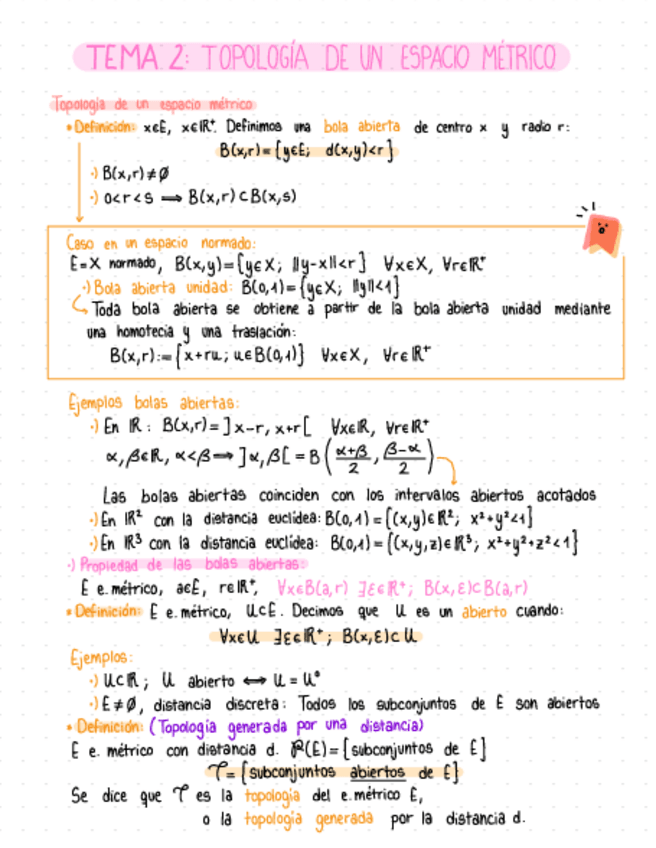 TEMA 2: TOPOLOGÍA DE UN ESPACIO MÉTRICO
Topología de un espacio métrico
• Definición: x∈E, x∈ℝ⁺. Definimos una bola abierta de centro x y radio r:
B(x,r)={y∈E; d(x,y)<r}
·) B(x,r)≠∅
·) 0<r<s ⟹ B(x,r)⊂B(x,s)
Caso en un espacio normado:
E=X normado, B(x,y)={y∈X; ||y-x||<r} ∀x∈X, ∀r∈ℝ⁺
·) Bola abierta unidad: B(0,1)={y∈X; ||y||<1}
Toda bola abierta se obtiene a partir de la bola abierta unidad mediante
una homotecia y una traslación:
B(x,r):={x+ru; u∈B(0,1)} ∀x∈X, ∀r∈ℝ⁺
Ejemplos bolas abiertas:
·) En ℝ: B(x,r)=]x-r, x+r[ ∀x∈ℝ, ∀r∈ℝ⁺
α,β∈ℝ, α<β ⟹ ]α,β[ = B((α+β)/2, (β-α)/2)
Las bolas abiertas coinciden con los intervalos abiertos acotados
·) En ℝ² con la distancia euclídea: B(0,1)={(x,y)∈ℝ²; x²+y²<1}
·) En ℝ³ con la distancia euclídea: B(0,1)={(x,y,z)∈ℝ³; x²+y²+z²<1}
·) Propiedad de las bolas abiertas:
E e.métrico, a∈E, r∈ℝ⁺, ∀x∈B(a,r) ∃ε∈ℝ⁺; B(x,ε)⊂B(a,r)
• Definición: E e.métrico, U⊂E. Decimos que U es un abierto cuando:
∀x∈U ∃ε∈ℝ⁺; B(x,ε)⊂U
Ejemplos:
·) U⊂ℝ; U abierto ⟺ U=U°
·) E≠∅, distancia discreta: Todos los subconjuntos de E son abiertos
• Definición: (Topología generada por una distancia)
E e.métrico con distancia d. P(E)={subconjuntos de E}
T={subconjuntos abiertos de E}
Se dice que T es la topología del e.métrico E,
o la topología generada por la distancia d.